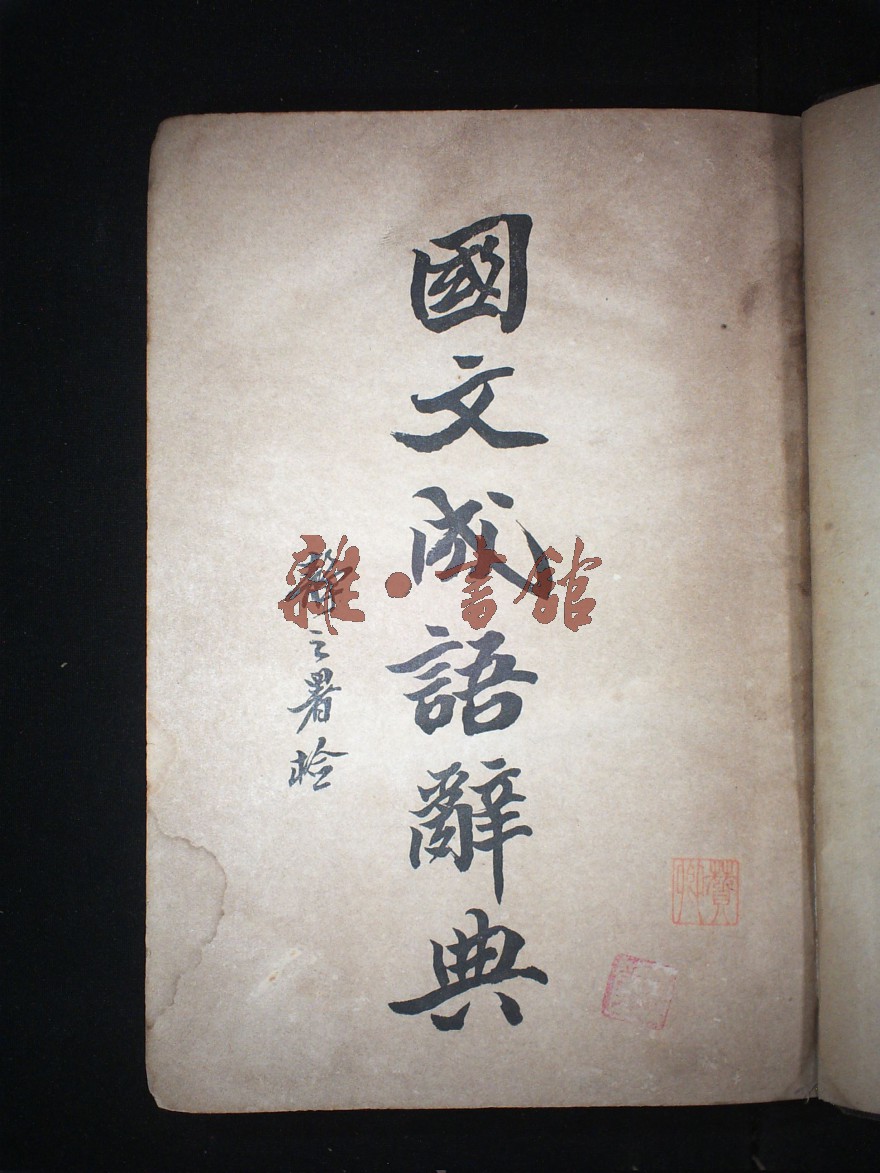 國文成語辭典
之署檢
雜·書館